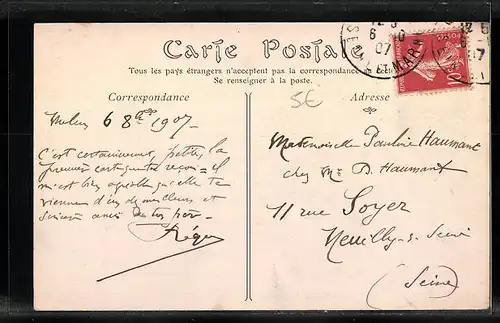 Carte Postale
Tous les pays étrangers n'acceptent pas la correspondance au
Se renseigner à la poste.
Correspondance
Adresse
5E
Melun 6 8bre 1907
C'est certainement, petite, la
première carte que tu reçois = il
m'est bien agréable qu'elle te
vienne d'un de meilleurs et
sincère amis de tes
Mademoiselle Pauline Haumant
chez Mr D. Haumant
11 rue Soyer
Neuilly-s-Seine
(Seine)
6 10
07
SEINE ET MAR
10